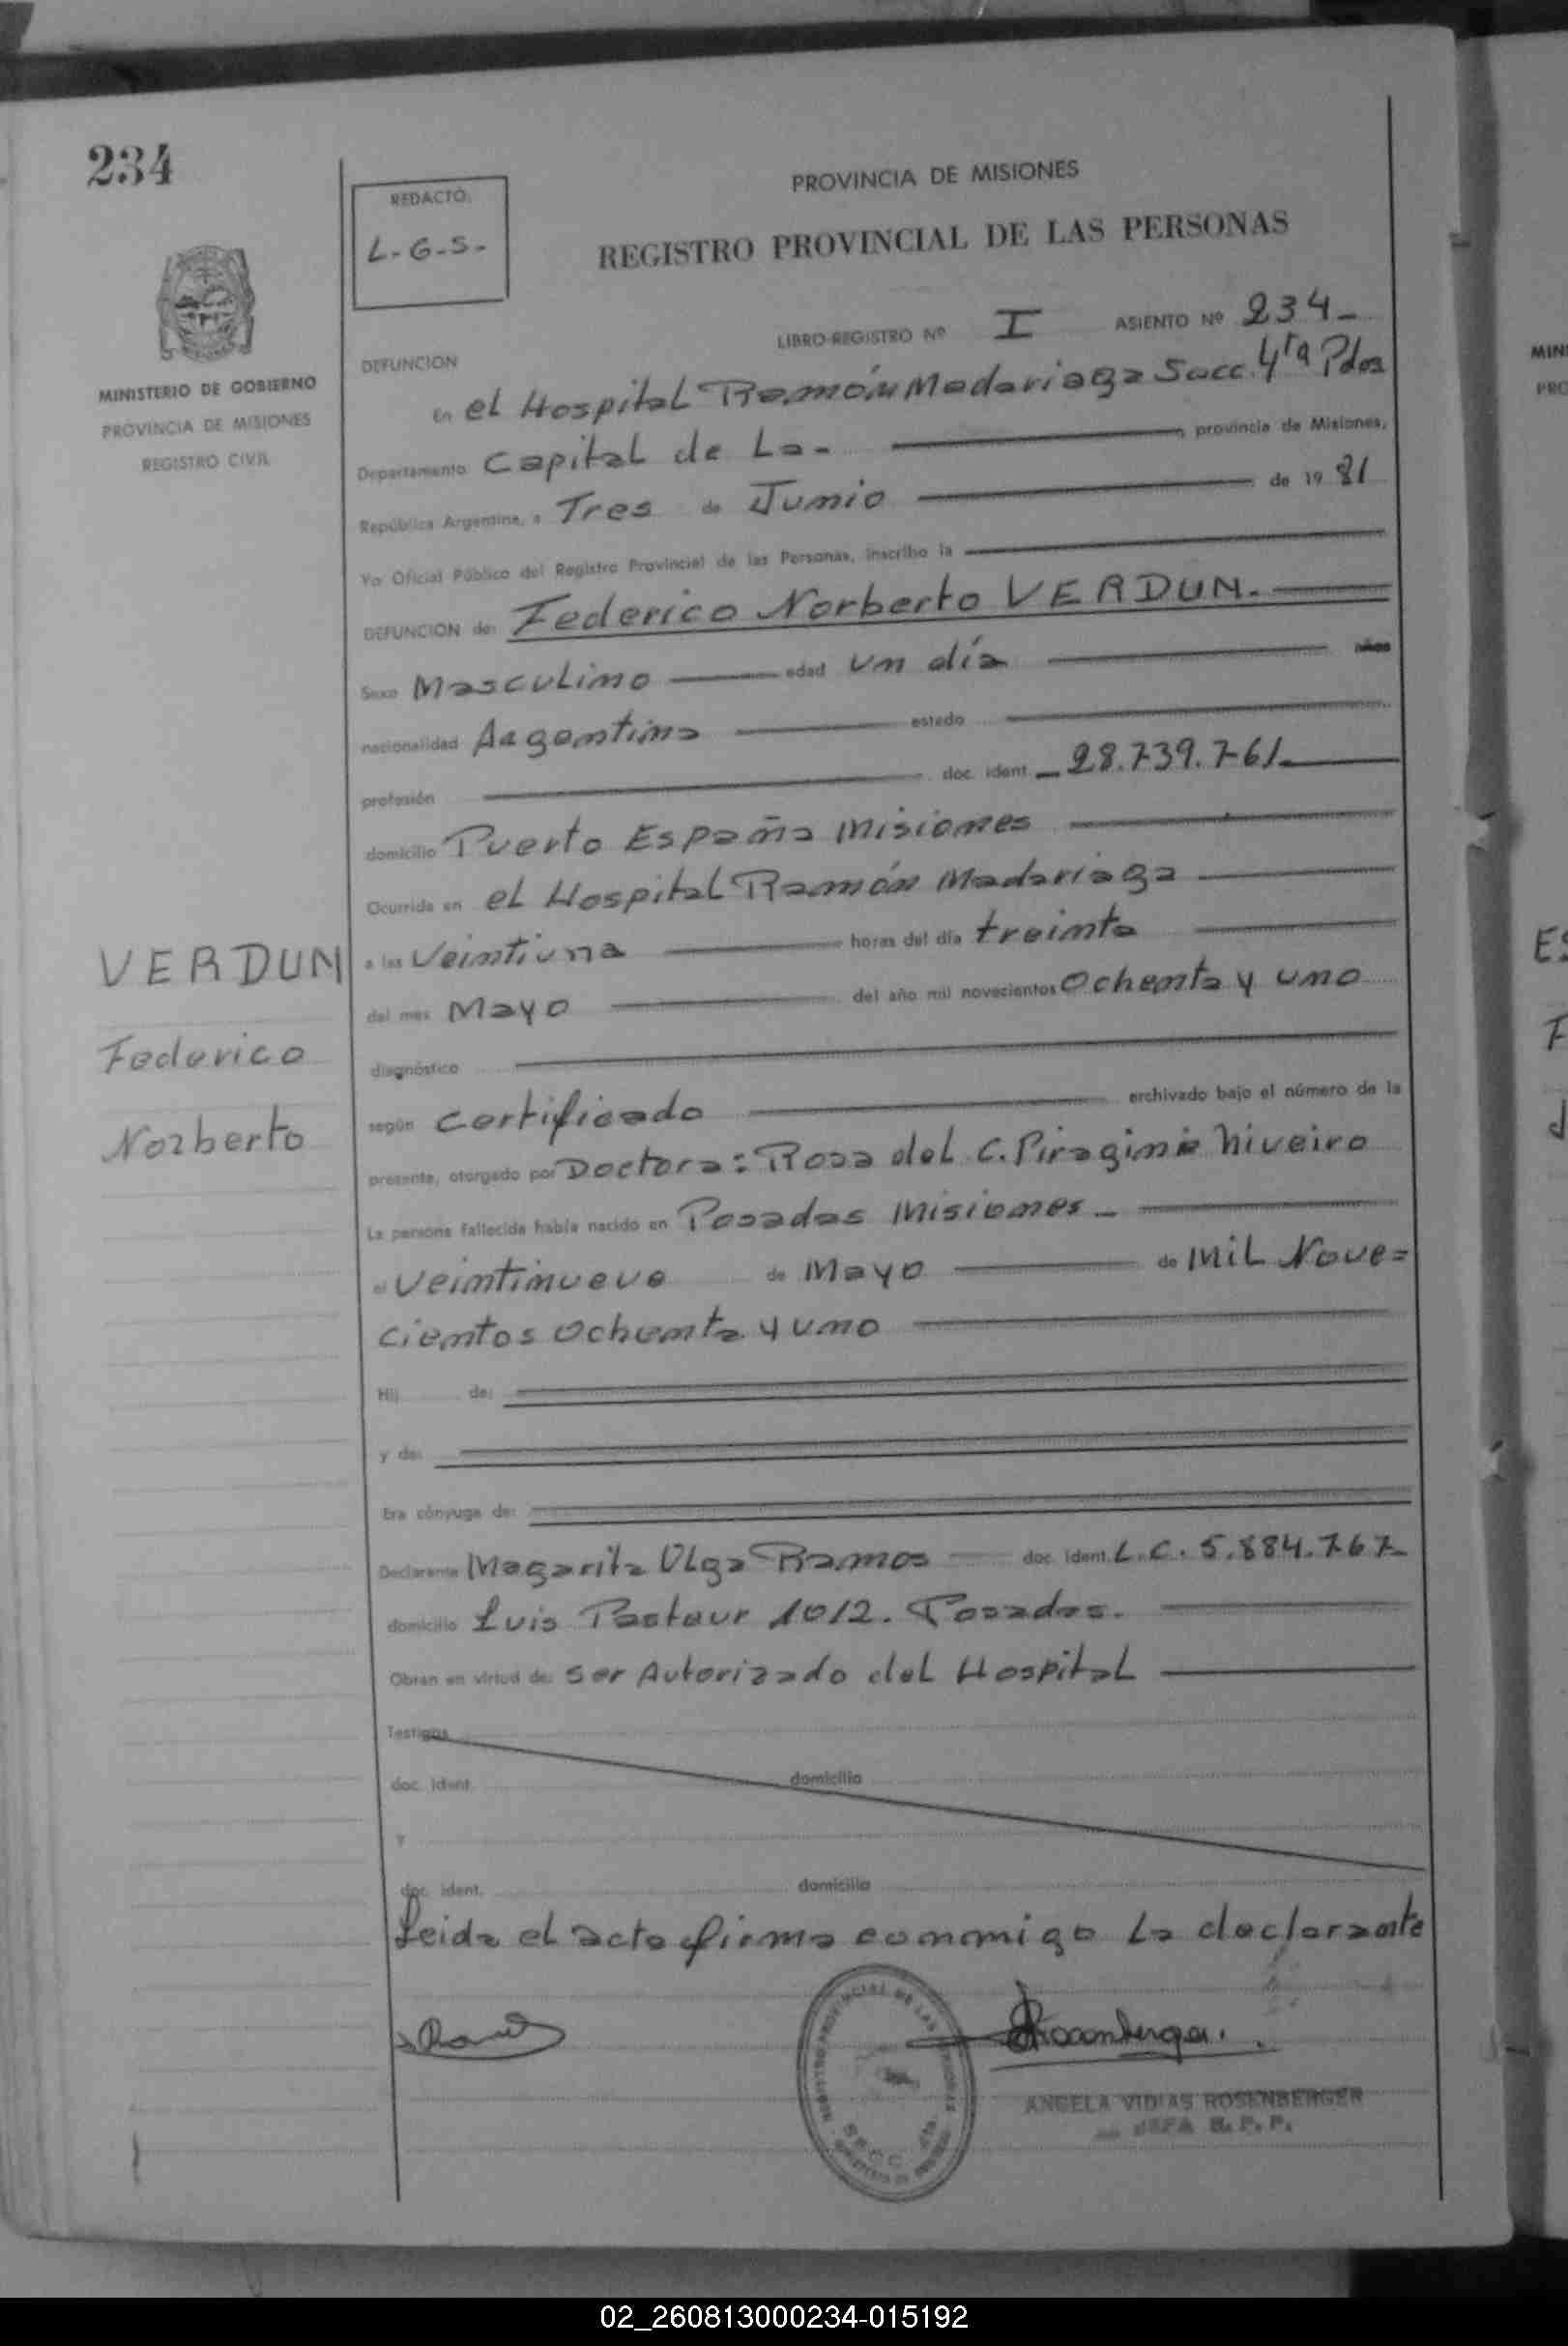 234
REDACTÓ:
L-G-S-
PROVINCIA DE MISIONES
REGISTRO PROVINCIAL DE LAS PERSONAS
MINISTERIO DE GOBIERNO
PROVINCIA DE MISIONES
REGISTRO CIVIL
LIBRO-REGISTRO Nº I ASIENTO Nº 234-
DEFUNCION
En el Hospital Ramón Madariaga Secc. 4ta Pdas
Departamento Capital de La- provincia de Misiones,
República Argentina, a Tres de Junio de 19 81
Yo Oficial Público del Registro Provincial de las Personas, inscribo la
DEFUNCION de: Federico Norberto VERDUN.
Sexo Masculino edad un día años
nacionalidad Argentina estado
profesión doc. ident. 28.739.761
domicilio Puerto España Misiones
Ocurrida en el Hospital Ramón Madariaga
a las Veintiuna horas del día treinta
del mes Mayo del año mil novecientos Ochenta y uno
diagnóstico
según certificado archivado bajo el número de la
presente, otorgado por Doctora: Rosa del C. Piragini Niveiro
La persona fallecida había nacido en Posadas Misiones-
el Veintinueve de Mayo de Mil Nove=
cientos Ochenta y uno
Hij de:
y de:
Era cónyuge de:
Declarante Magarita Olga Ramos doc. ident. L.C. 5.884.767
domicilio Luis Pasteur 1012. Posadas.
Obran en virtud de: ser Autorizado del Hospital
Testigos
doc. ident. domicilio
y
doc. ident. domicilio
Leida el acta firma conmigo La declarante
VERDUN
Federico
Norberto
Rosenberger.
ANGELA VIDIAS ROSENBERGER
JEFA R. P. P.
02_260813000234-015192